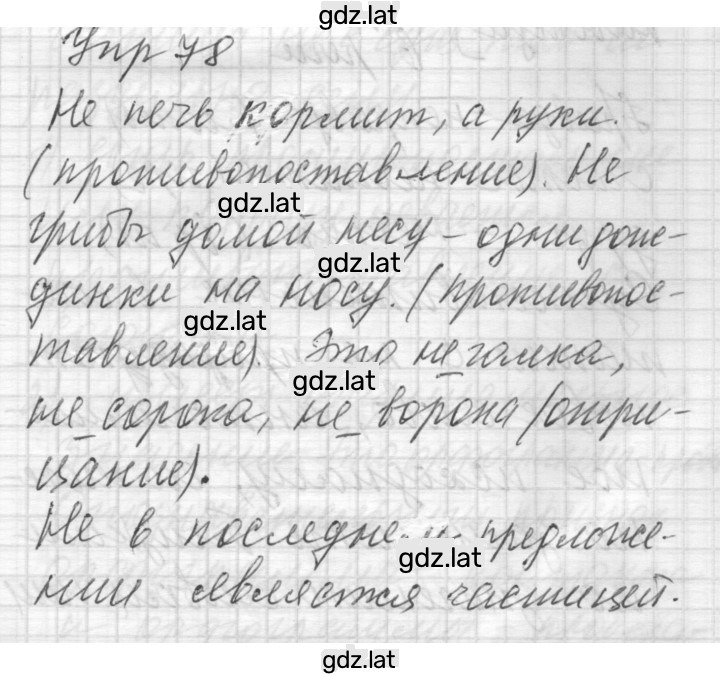 gdz.lat
Упр 78
Не печь кормит, а руки.
(противопоставление). Не
gdz.lat
грибы домой несу - одни дож-
gdz.lat
динки на носу. (противопос-
gdz.lat
тавление). Это не галка,
gdz.lat
не сорока, не ворона (отри-
цание).
Не в последнем предложе-
gdz.lat
нии является частицей.
gdz.lat